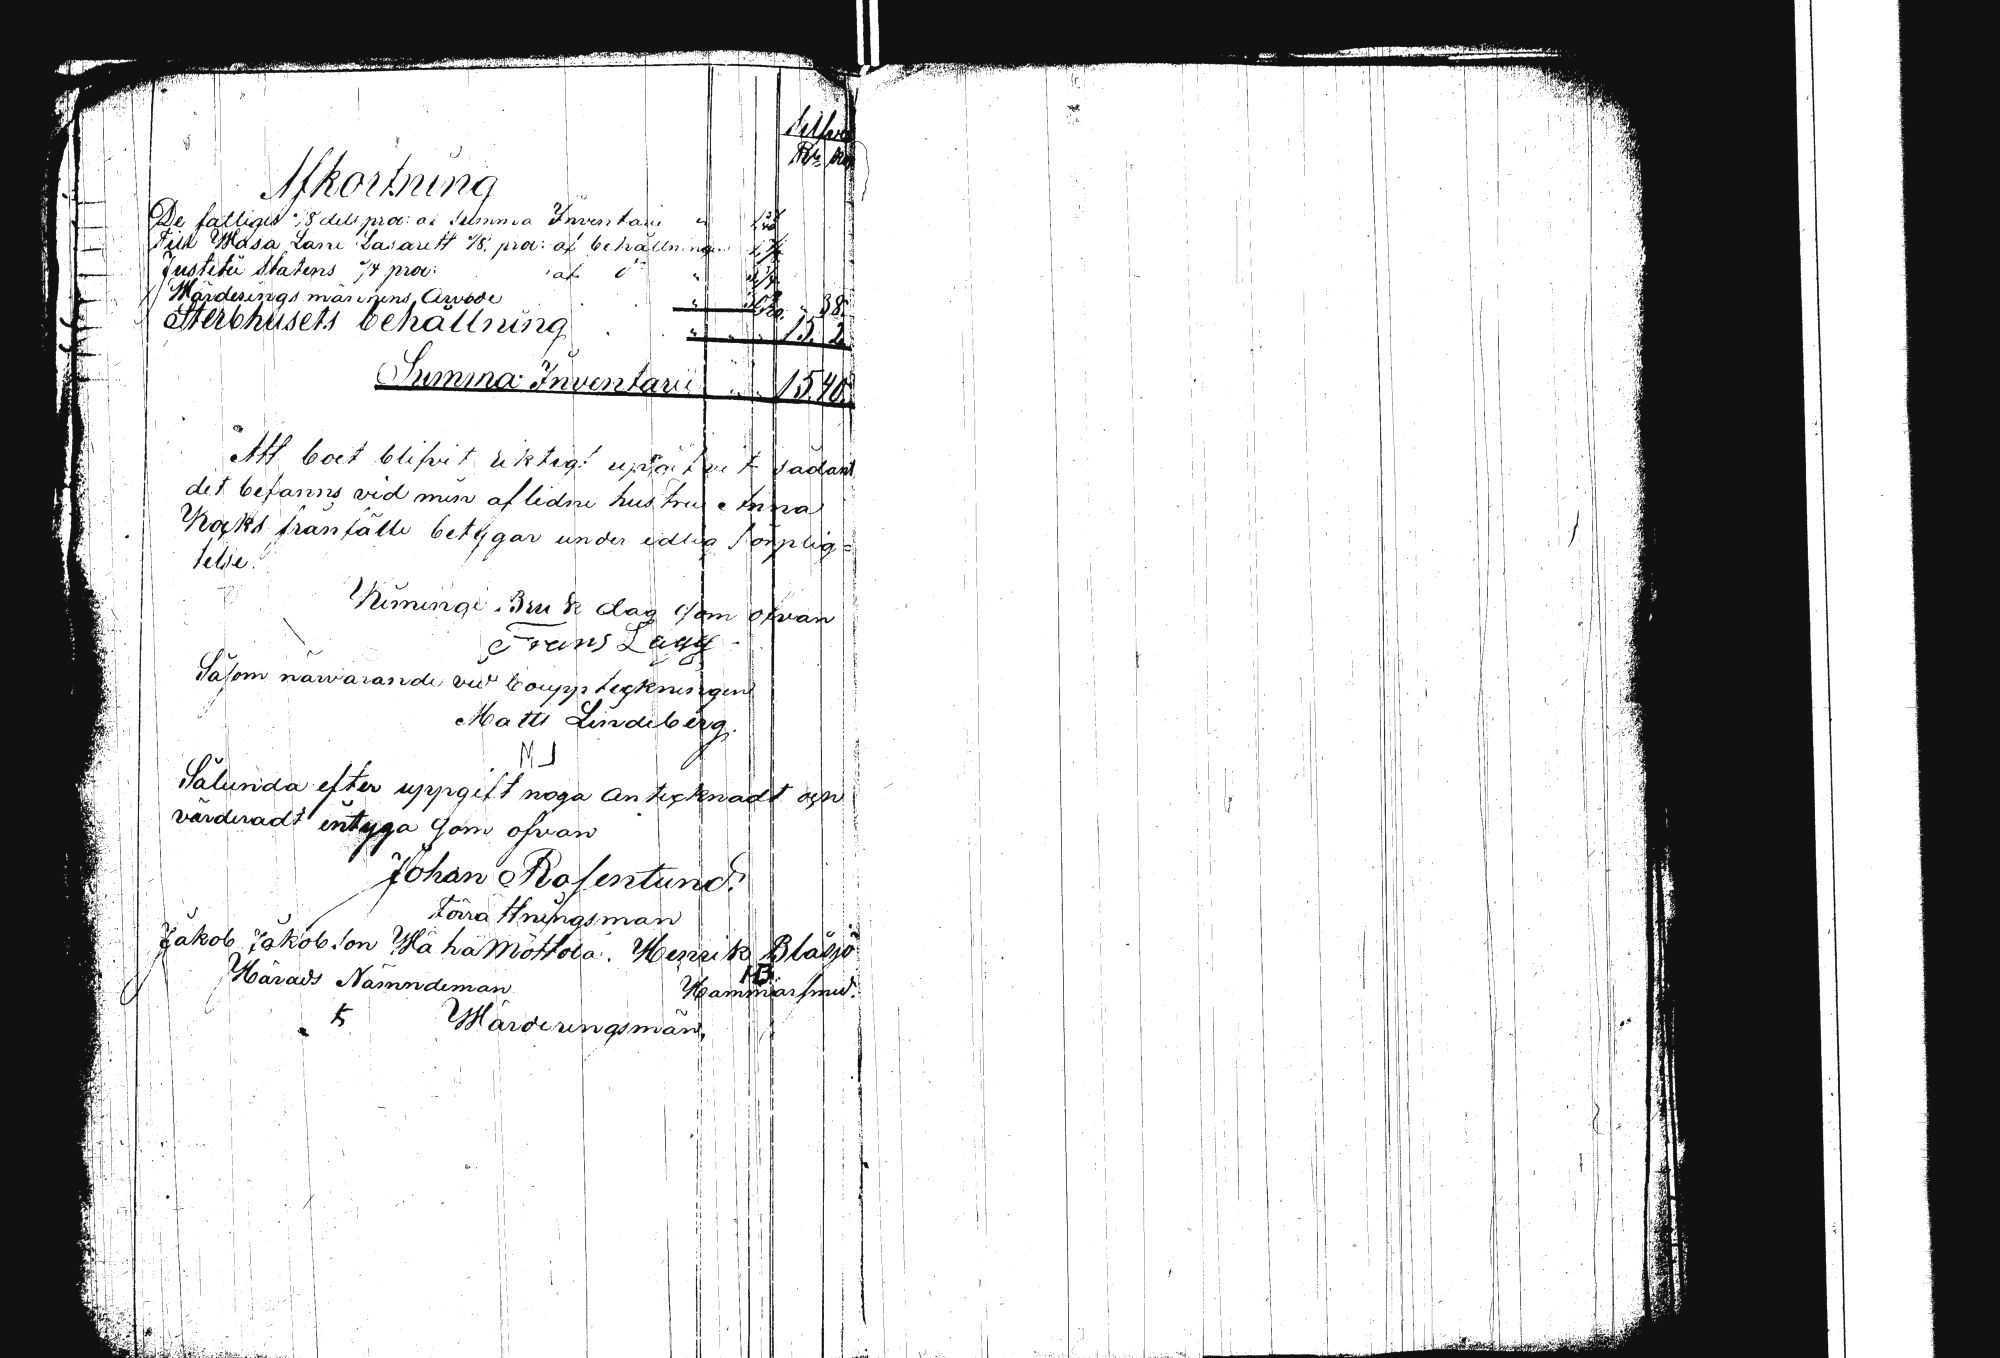 Silfver
Rub. Kop
Afkortning
De fattiges 1/8 dels proc: af Summa Inventarii
Till Wasa Läne Lasarett 1/8 proc: af behållningen
Justitii Statens 1/4 proc: af d:o
Wärderings männens Arvode 38.
Sterbhusets behållning 15. 2
Summa Inventarii 15.40.
Att boet blifvit riktigt uppgifvet sådant
det befanns vid min aflidne hustru Anna
Kocks frånfälle betygar under edlig förplig=
telse.
Kiminge Bruk dag som ofvan
Frans Lagg
Såsom närvarande vid bouppteckningen
Matts Lindeberg.
ML
Sålunda efter uppgift noga antecknadt och
värderadt intyga som ofvan
Johan Rosenlund.
förrättningsman
Jakob Jakobson Wähä Möttölä. Henrik Blåsjö
HB
Härads Nämndeman Hammarsmed.
Wärderingsmän,